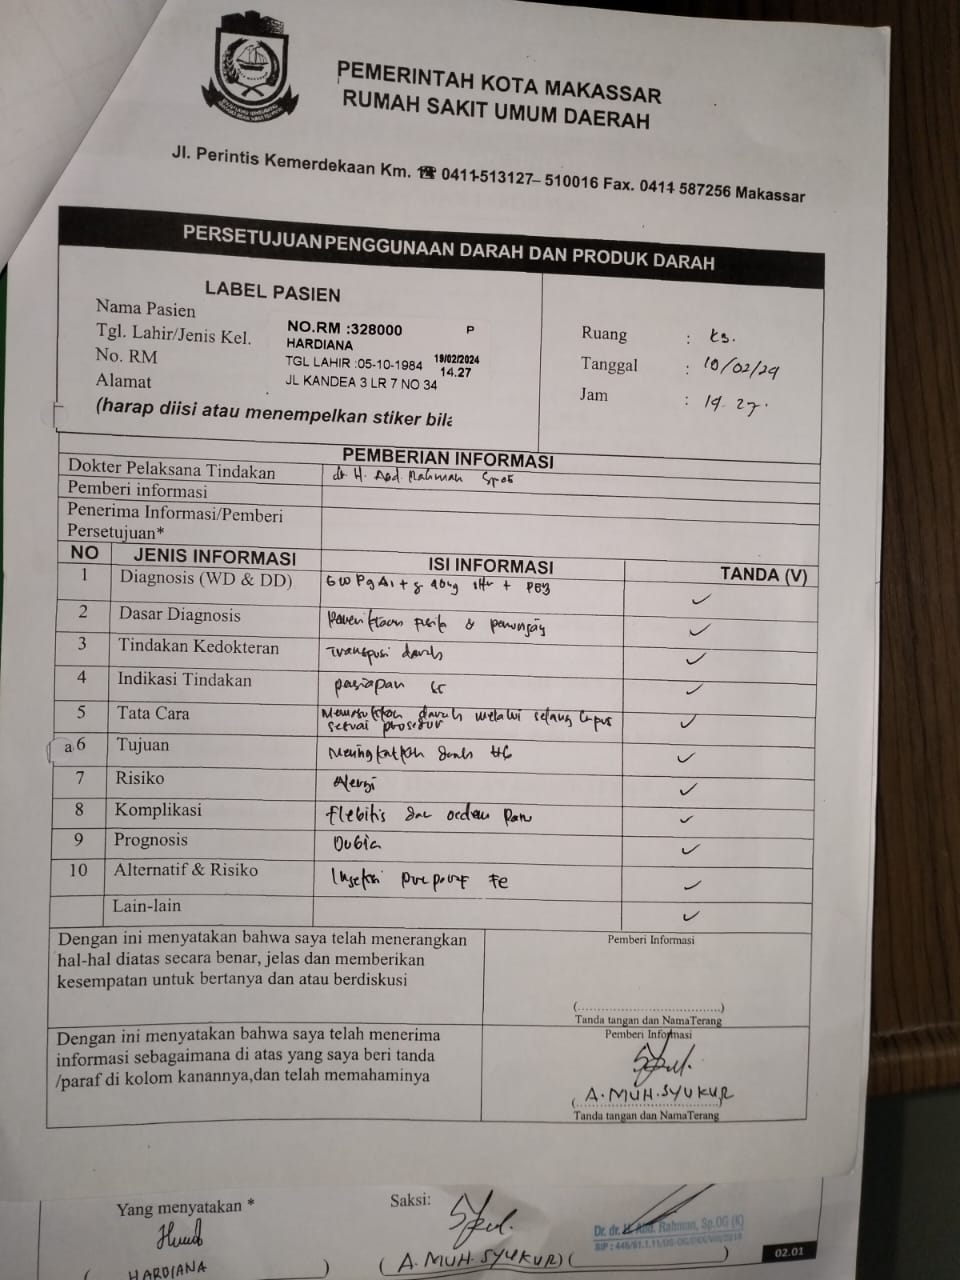 PEMERINTAH KOTA MAKASSAR
RUMAH SAKIT UMUM DAERAH
Jl. Perintis Kemerdekaan Km. ☎ 0411-513127– 510016 Fax. 0411 587256 Makassar
PERSETUJUAN PENGGUNAAN DARAH DAN PRODUK DARAH
LABEL PASIEN
Nama Pasien
Tgl. Lahir/Jenis Kel.
No. RM
Alamat
NO.RM :328000 P
HARDIANA
TGL LAHIR :05-10-1984 19/02/2024
14.27
JL KANDEA 3 LR 7 NO 34
(harap diisi atau menempelkan stiker bila
Ruang :
Tanggal :
Jam : 14.27.
PEMBERIAN INFORMASI
Dokter Pelaksana Tindakan dr H. Abd. Rahman SpOG
Pemberi informasi
Penerima Informasi/Pemberi
Persetujuan*
NO JENIS INFORMASI ISI INFORMASI TANDA (V)
1 Diagnosis (WD & DD) ✓
2 Dasar Diagnosis & ✓
3 Tindakan Kedokteran Transpusi darah ✓
4 Indikasi Tindakan ✓
5 Tata Cara darah melalui selang infus
sesuai prosedur ✓
a 6 Tujuan HB ✓
7 Risiko Alergi ✓
8 Komplikasi flebitis ✓
9 Prognosis Dubia ✓
10 Alternatif & Risiko Injeksi Fe ✓
Lain-lain ✓
Dengan ini menyatakan bahwa saya telah menerangkan
hal-hal diatas secara benar, jelas dan memberikan
kesempatan untuk bertanya dan atau berdiskusi
Pemberi Informasi
(..............................................)
Tanda tangan dan NamaTerang
Dengan ini menyatakan bahwa saya telah menerima
informasi sebagaimana di atas yang saya beri tanda
/paraf di kolom kanannya,dan telah memahaminya
Pemberi Informasi
A. MUH. SYUKUR
Tanda tangan dan NamaTerang
Yang menyatakan *
Saksi:
Dr. dr. H. Abd. Rahman, Sp.OG (K)
( HARDIANA )
( A. MUH. SYUKUR) ( )
02.01